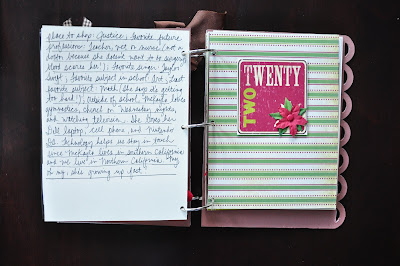 place to shop: Justice; favorite future
profession: Teacher, vet or nurse (not a
person because she doesn't want to be surgeon,
blood scares her!); favorite singer: Taylor
Swift; favorite subject in school: Art; least
favorite subject: Math (she says it's getting
too hard!). Outside of school, McKayla loves
gymnastics, church on Wednesday nights,
and watching television. She loves her
Dell laptop, cell phone, and Nintendo
DS. Technology helps us stay in touch
since McKayla lives in southern California
and we live in Northern California. My
oh my, she's growing up fast!
TWENTY
TWO